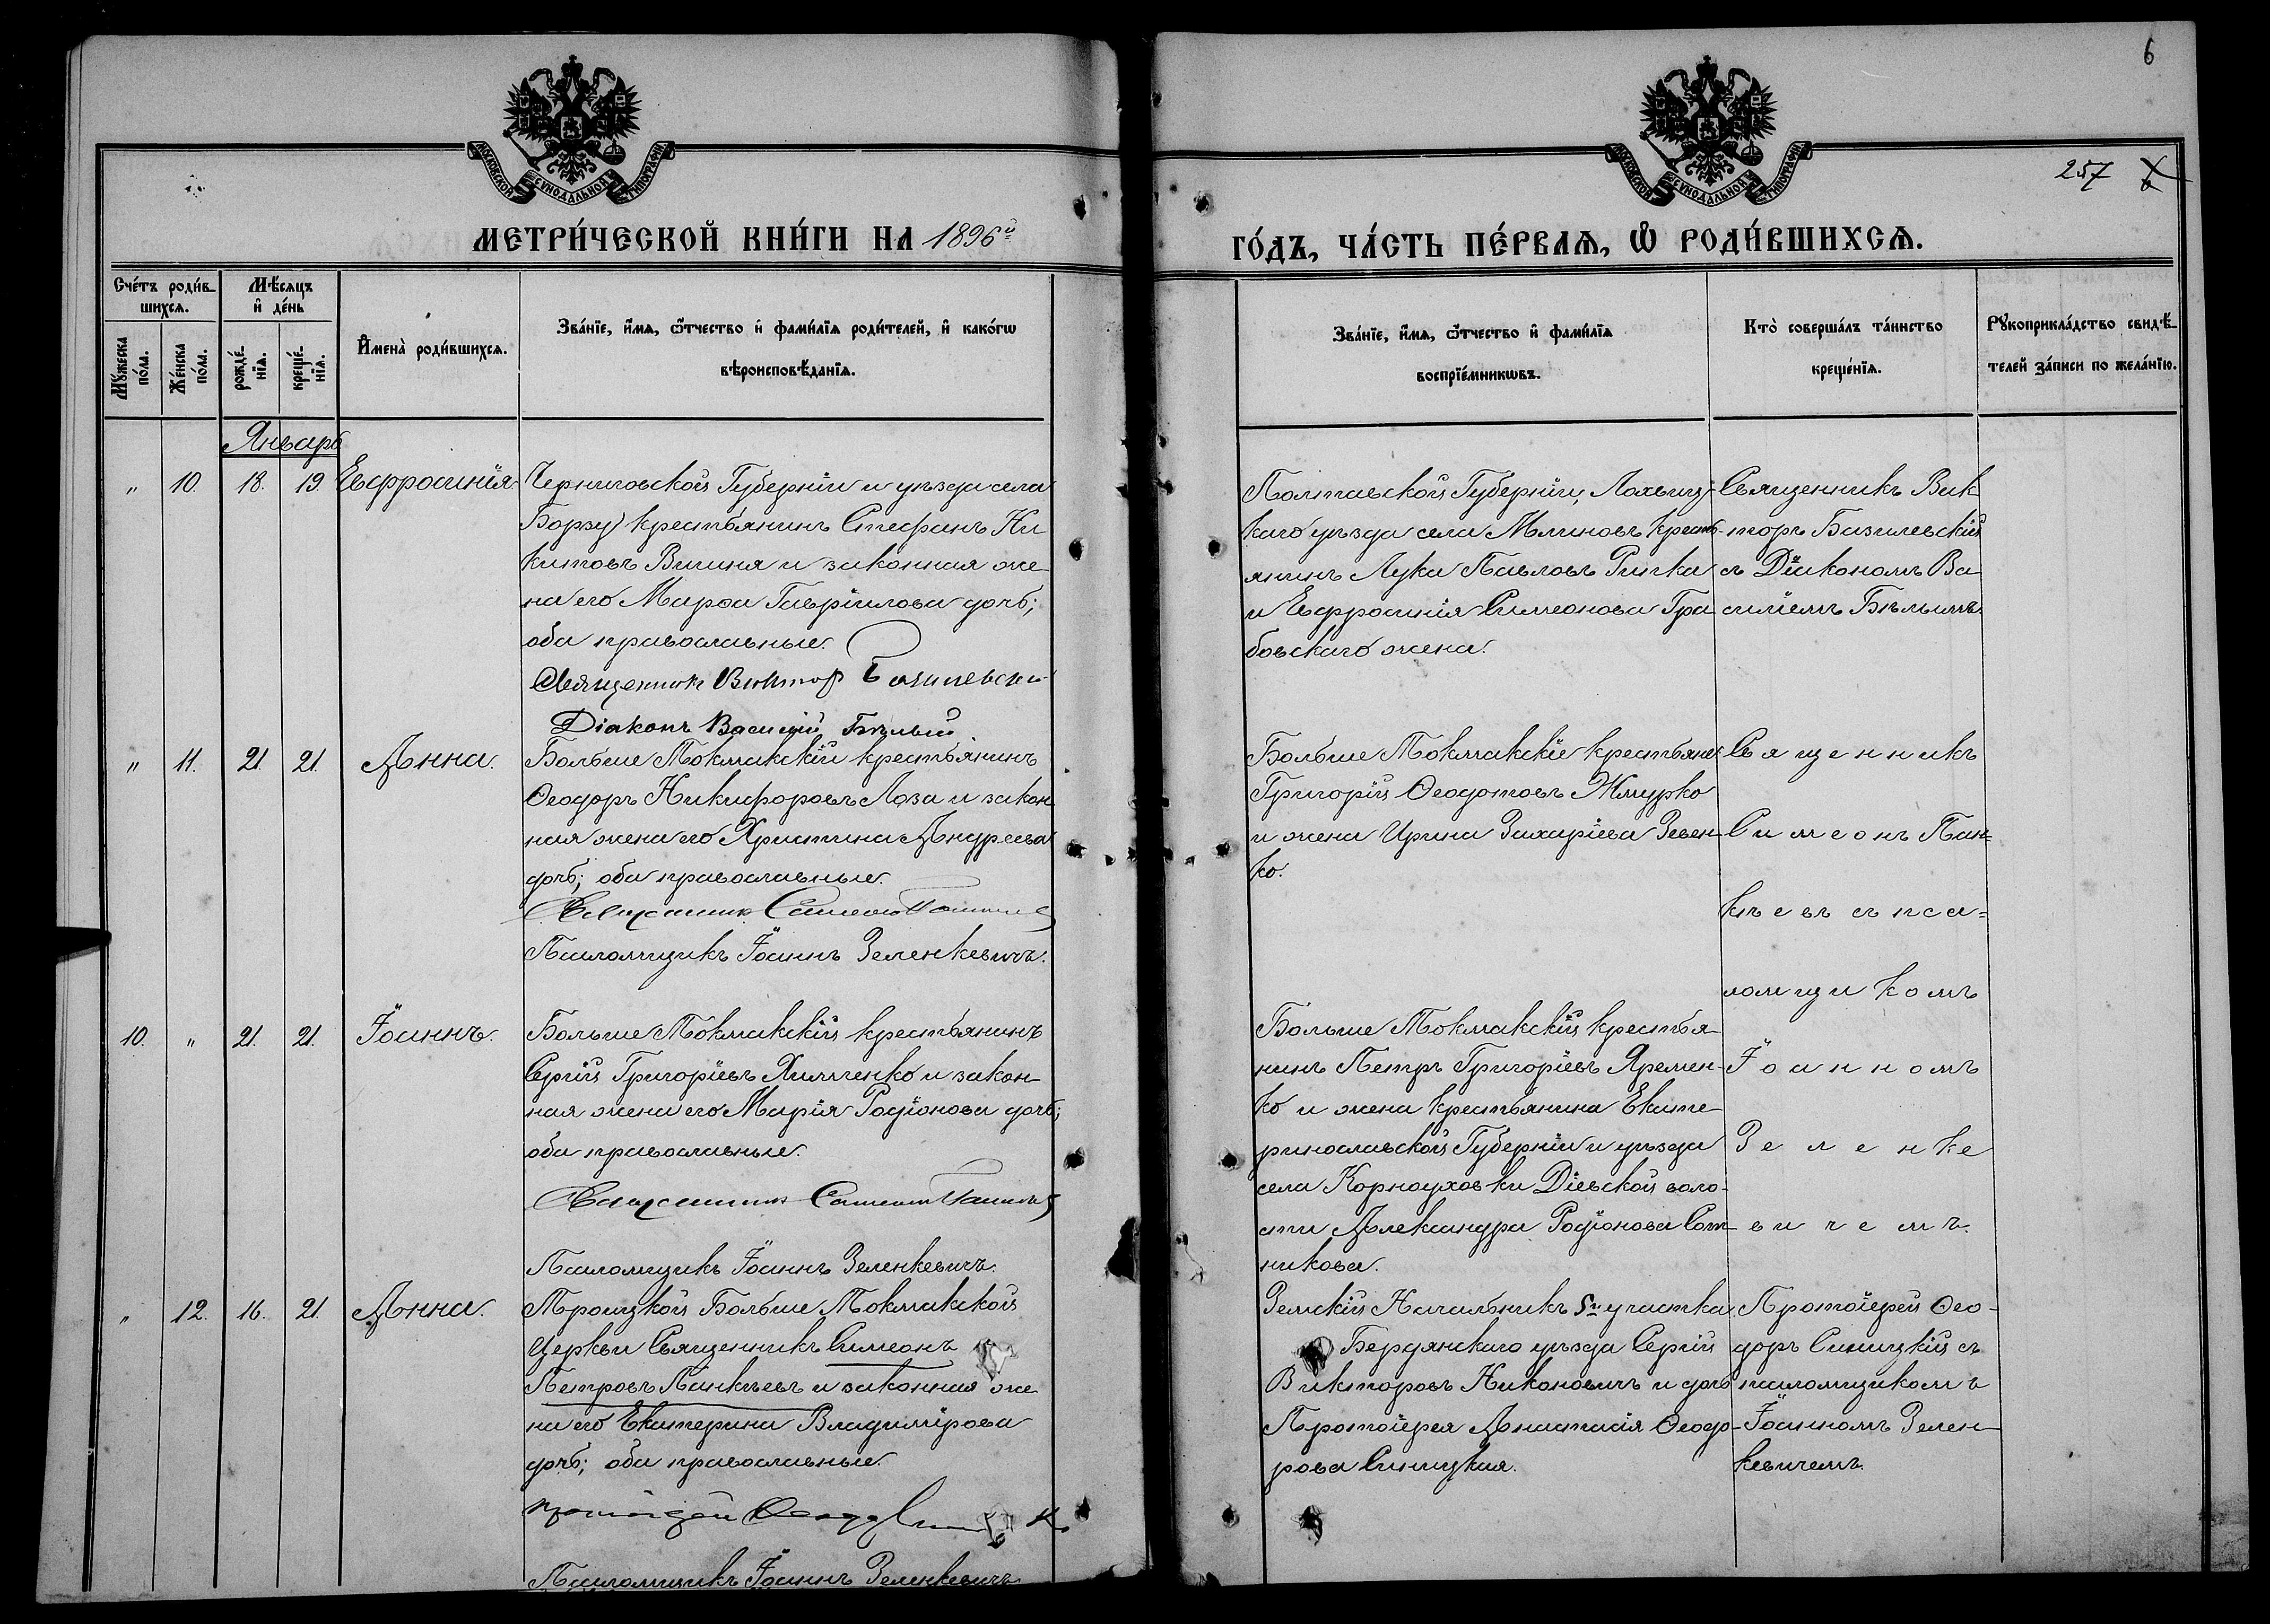 6
257
МОСКОВСКОЙ СѴНОДАЛЬНОЙ ТИПОГРАФІИ
МОСКОВСКОЙ СѴНОДАЛЬНОЙ ТИПОГРАФІИ
МЕТРИ́ЧЕСКОЙ КНИ́ГИ НА 1896й
ГО́ДЪ, ЧА́СТЬ ПЕ́РВАѦ, Ѡ҆ РОДИ́ВШИХСѦ.
Сче́тъ роди́в-
шихсѧ.
Мꙋ́жеска по́ла.
Же́нска по́ла.
Мѣ́сѧцъ
и҆ де́нь
рожде́-
нїѧ.
креще́-
нїѧ.
И҆мена̀ роди́вшихсѧ.
Зва́нїе, и҆́мѧ, ѻ҆́тчество и҆ фами́лїѧ роди́телей, и҆ како́гѡ
вѣроисповѣ́данїѧ.
Зва́нїе, и҆́мѧ, ѻ҆́тчество и҆ фами́лїѧ
воспрїе́мникѡвъ.
Кто̀ соверша́лъ та́инство
креще́нїѧ.
Рꙋкоприкла́дство свидѣ́-
телей за́писи по жела́нїю.
Январь
" 10. 18. 19. Евфросинія
Черниговской Губерніи и уѣзда села
Борзу крестьянинъ Стефанъ Ни
китовъ Вишня и законная же
на его Марѳа Гавріилова дочь;
оба православные.
Священник Виктор Базилевскій
Діаконъ Василій Бѣлый
Полтавской Губерніи, Лохвиц-
каго уѣзда села Млиновъ кресть-
янинъ Лука Павловъ Рипка
и Евфросинія Симеонова Гра
бовскаго жена.
Священникъ Вик
торъ Базилевскій
съ Діакономъ Ва
силіемъ Бѣлымъ
" 11. 21. 21. Анна.
Больше Токмакскій крестьянинъ
Ѳеодоръ Никифоровъ Лоза и закон
ная жена его Христина Андреева
дочь; оба православные.
Священникъ Симеонъ Панкѣевъ
Псаломщикъ Іоаннъ Зеленкевичъ.
Больше Токмакскіе крестьяне
Григорій Ѳеодотовъ Жмурко
и жена Ирина Захаріева Зевен-
ко.
Священникъ
Симеонъ Пан=
кѣевъ съ пса=
ломщикомъ
Іоанномъ
Зеленке
вичемъ.
10. " 21. 21. Іоаннъ.
Больше Токмакскій крестьянинъ
Сергій Григоріевъ Химченко и закон-
ная жена его Марія Родіонова дочь;
оба православные.
Священникъ Симеонъ Панкѣевъ
Псаломщикъ Іоаннъ Зеленкевичъ.
Больше Токмакскій крестья-
нинъ Петръ Григоріевъ Яремен-
ко и жена крестьянина Екате-
ринославской Губерніи и уѣзда
села Корноуховки Діевской воло-
сти Александра Родіонова Сот-
никова.
" 12. 16. 21. Анна.
Троицкой Больше Токмакской
Церкви Священникъ Симеонъ
Петровъ Панкѣевъ и законная же
на его Екатерина Владимірова
дочь; оба православные.
протоіерей Ѳеодоръ
Псаломщикъ Іоаннъ Зеленкевичъ
Земскій Начальникъ 5го участка
Бердянскаго уѣзда Сергій
Викторовъ Никоновичъ и дочь
Протоіерея Анастасія Ѳеодо-
рова Синицкая.
Протоіерей Ѳео-
доръ Синицкій съ
псаломщикомъ
Іоанномъ Зелен-
кевичемъ.